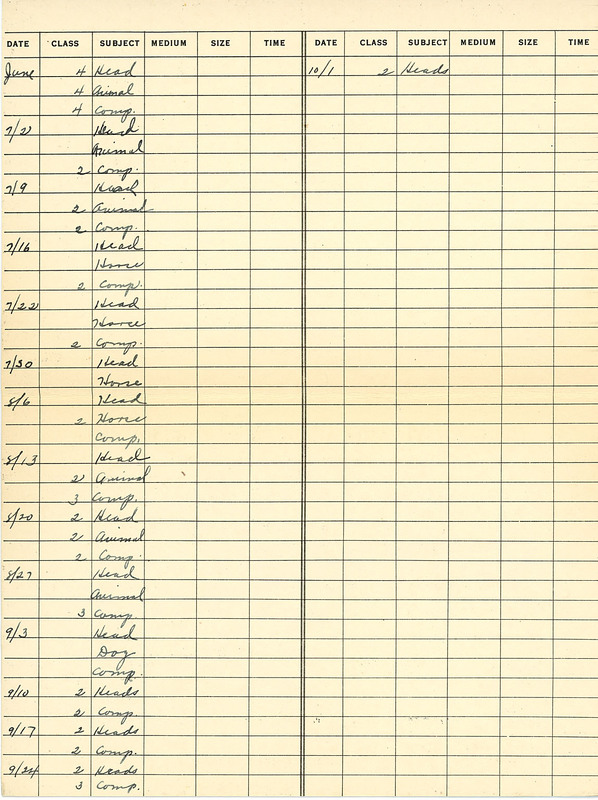 DATE CLASS SUBJECT MEDIUM SIZE TIME DATE CLASS SUBJECT MEDIUM SIZE TIME
June 4 Head
4 Animal
4 Comp.
7/2 Head
Animal
2 Comp.
7/9 Head
2 Animal
2 Comp.
7/16 Head
Horse
2 Comp.
7/22 Head
Horse
2 Comp.
7/30 Head
Horse
8/6 Head
2 Horse
Comp.
8/13 Head
2 Animal
3 Comp.
8/20 2 Head
2 Animal
2 Comp.
8/27 Head
Animal
3 Comp.
9/3 Head
Dog
Comp.
9/10 2 Heads
2 Comp.
9/17 2 Heads
2 Comp.
9/24 2 Heads
3 Comp.
10/1 2 Heads